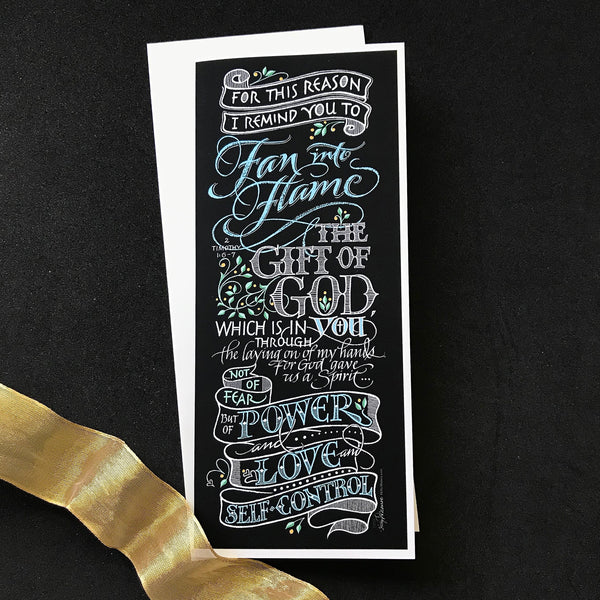 FOR THIS REASON
I REMIND YOU TO
Fan into
Flame
THE
2
TIMOTHY
1:6-7
GIFT OF
GOD,
WHICH IS IN YOU,
THROUGH
the laying on of my hands
For God gave
us a Spirit...
NOT
OF
FEAR
BUT
OF POWER
and
of LOVE and
SELF-CONTROL